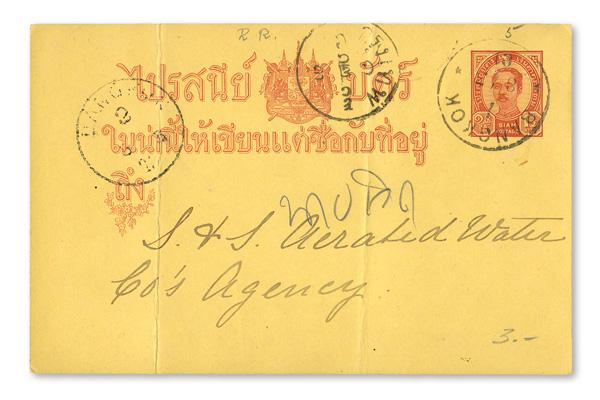 R R. 5
ไปรสนีย์ บัตร์
ในน่านี้ให้เขียนแต่ชื่อกับที่อยู่
ถึง
SIAM
POSTAGE
BANGKOK
S. & S. Aerated Water
Co's Agency.
3.-